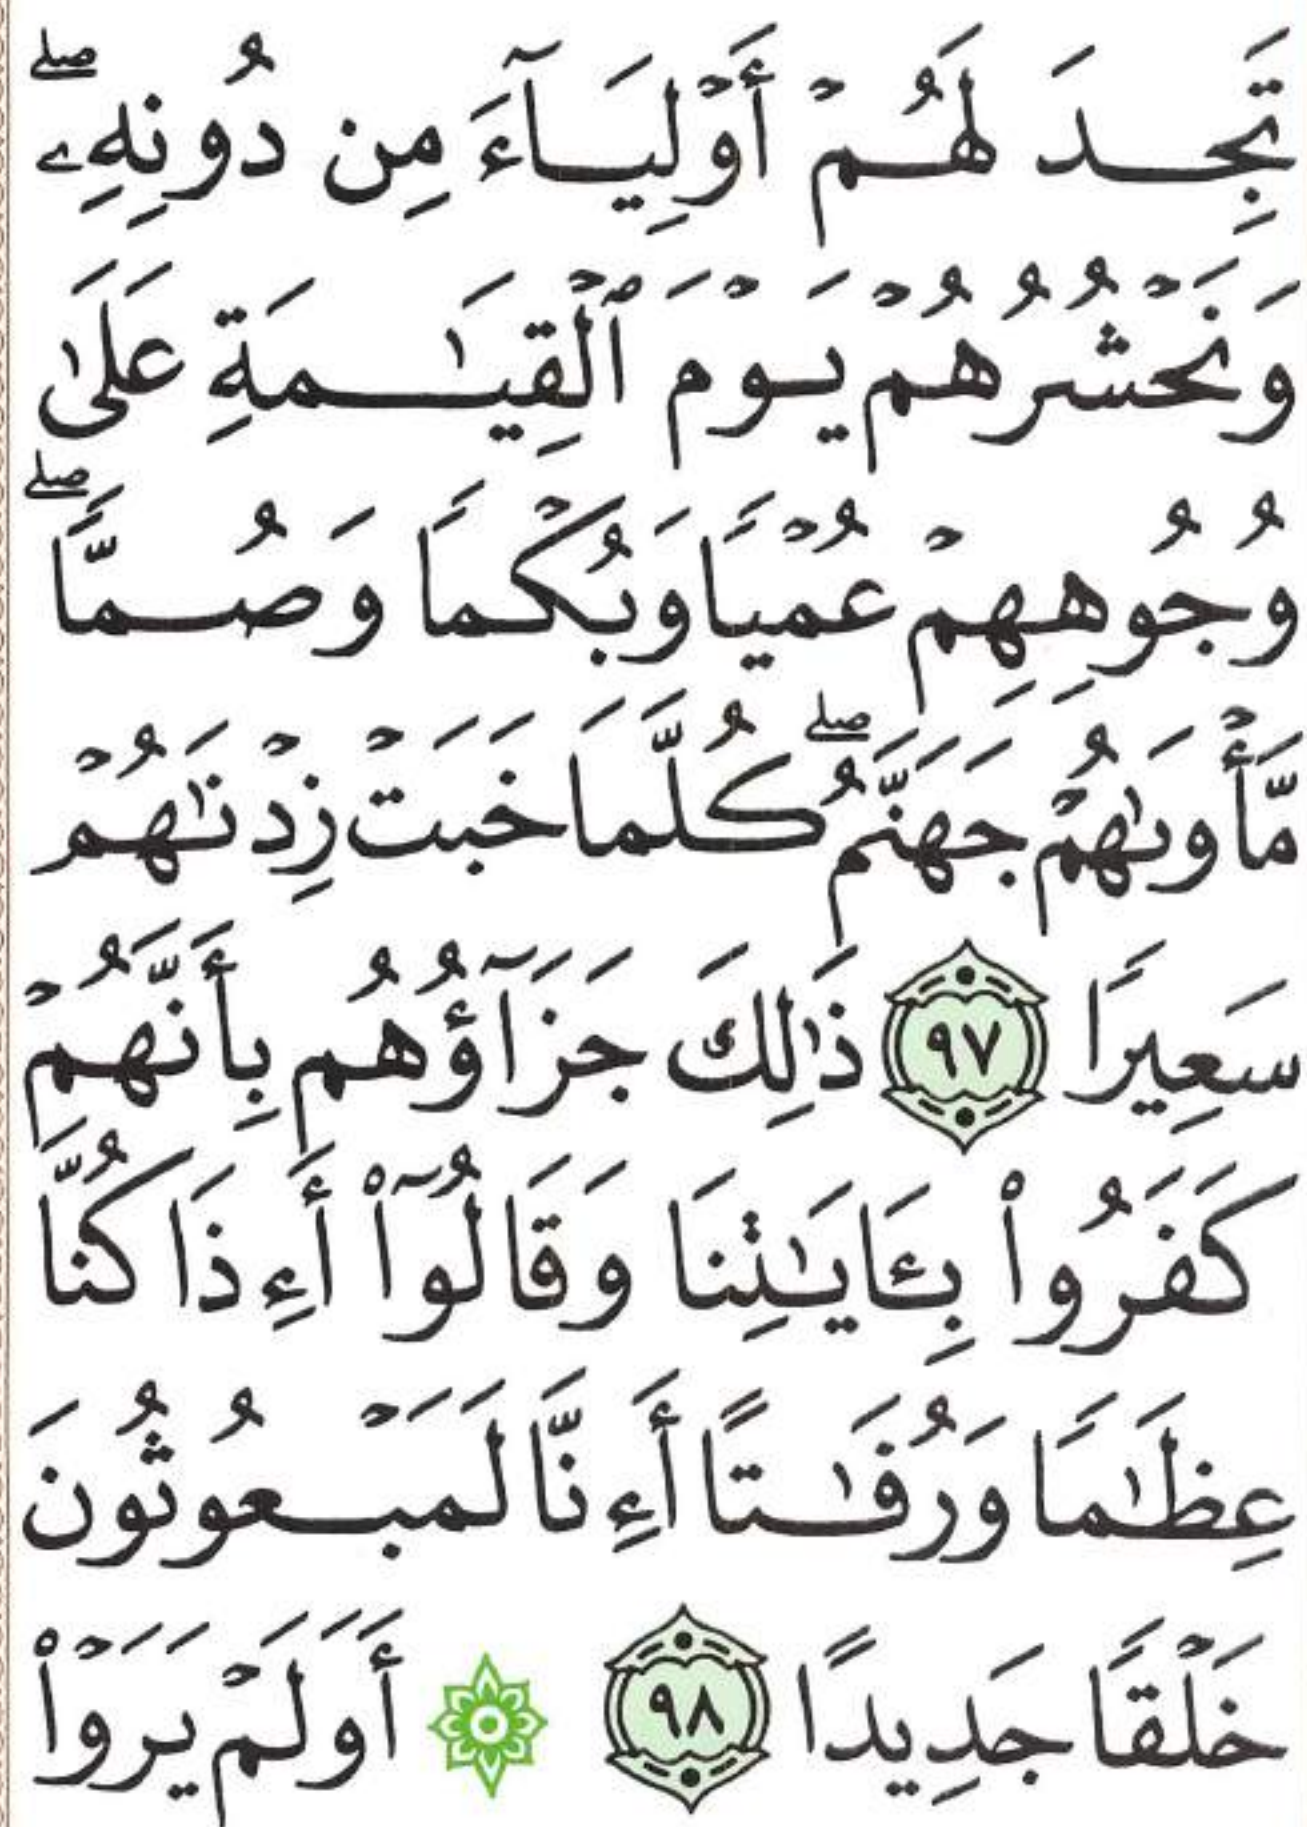 تَجِدَ لَهُمْ أَوْلِيَآءَ مِن دُونِهِۦۖ
وَنَحْشُرُهُمْ يَوْمَ ٱلْقِيَٰمَةِ عَلَىٰ
وُجُوهِهِمْ عُمْيًا وَبُكْمًا وَصُمًّاۖ
مَّأْوَىٰهُمْ جَهَنَّمُۖ كُلَّمَا خَبَتْ زِدْنَٰهُمْ
سَعِيرًا ٩٧ ذَٰلِكَ جَزَآؤُهُم بِأَنَّهُمْ
كَفَرُوا۟ بِـَٔايَٰتِنَا وَقَالُوٓا۟ أَءِذَا كُنَّا
عِظَٰمًا وَرُفَٰتًا أَءِنَّا لَمَبْعُوثُونَ
خَلْقًا جَدِيدًا ٩٨ أَوَلَمْ يَرَوْا۟